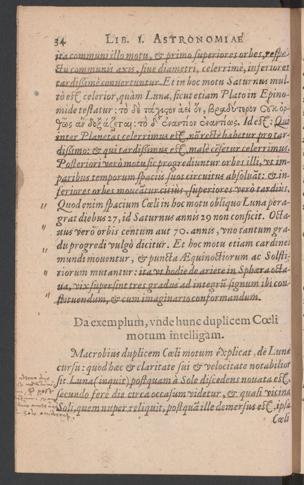 34 LIB. I. ASTRONOMIAE
ita communi illo motu, & primo superiores orbes, respe-
ctu communis axis, sive diametri, celerrimè, inferior et
tardissimè convertuntur. Et in hoc motu Saturnus mul-
tò est celerior, quàm Luna, sicut etiam Plato in Epino-
mide testatur:
Id est: Qui
inter Planetas celerrimus est, nō rectè habetur pro tar-
dissimo: & qui tardissimus est, malè cēsetur celerrimus.
Posteriori verò motu sic progrediuntur orbes illi, vt im-
paribus temporum spaciis suos circuitus absoluāt: & in-
feriores orbes moveātur citius, superiores verò tardius.
Quod enim spacium Cœli in hoc motu obliquo Luna pera-
grat diebus 27, id Saturnus annis 29 non conficit. Octa-
uus verò orbis centum aut 70. annis, vno tantum gra-
du progredi vulgò dicitur. Et hoc motu etiam cardines
mundi moventur, & puncta Æquinoctiorum ac Solsti-
tiorum mutantur: ita vt hodie de ariete in Sphæra octa-
ua, vix supersint tres gradus ad integrū signum ibi con-
stituendum, & cum imaginario conformandum.
Da exemplum, vnde hunc duplicem Cœli
motum intelligam.
Macrobius duplicem Cœli motum explicat, de Lunæ
cursu: quòd hæc & claritate sui & velocitate notabilior
sit. Luna (inquit) postquam à Sole discedens nouata est,
secundo ferè die circa occasum videtur, & quasi vicina
Soli, quem nuper reliquit, postquā ille demersus est, ipsa
Cœli